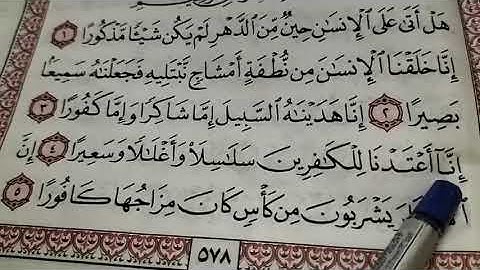 هَلْ أَتَىٰ عَلَى ٱلْإِنسَٰنِ حِينٌ مِّنَ ٱلدَّهْرِ لَمْ يَكُن شَيْـًٔا مَّذْكُورًا ١
إِنَّا خَلَقْنَا ٱلْإِنسَٰنَ مِن نُّطْفَةٍ أَمْشَاجٍ نَّبْتَلِيهِ فَجَعَلْنَٰهُ سَمِيعًۢا
بَصِيرًا ٢ إِنَّا هَدَيْنَٰهُ ٱلسَّبِيلَ إِمَّا شَاكِرًا وَإِمَّا كَفُورًا ٣
إِنَّآ أَعْتَدْنَا لِلْكَٰفِرِينَ سَلَٰسِلَا۟ وَأَغْلَٰلًا وَسَعِيرًا ٤ إِنَّ
يَشْرَبُونَ مِن كَأْسٍ كَانَ مِزَاجُهَا كَافُورًا ٥
٥٧٨